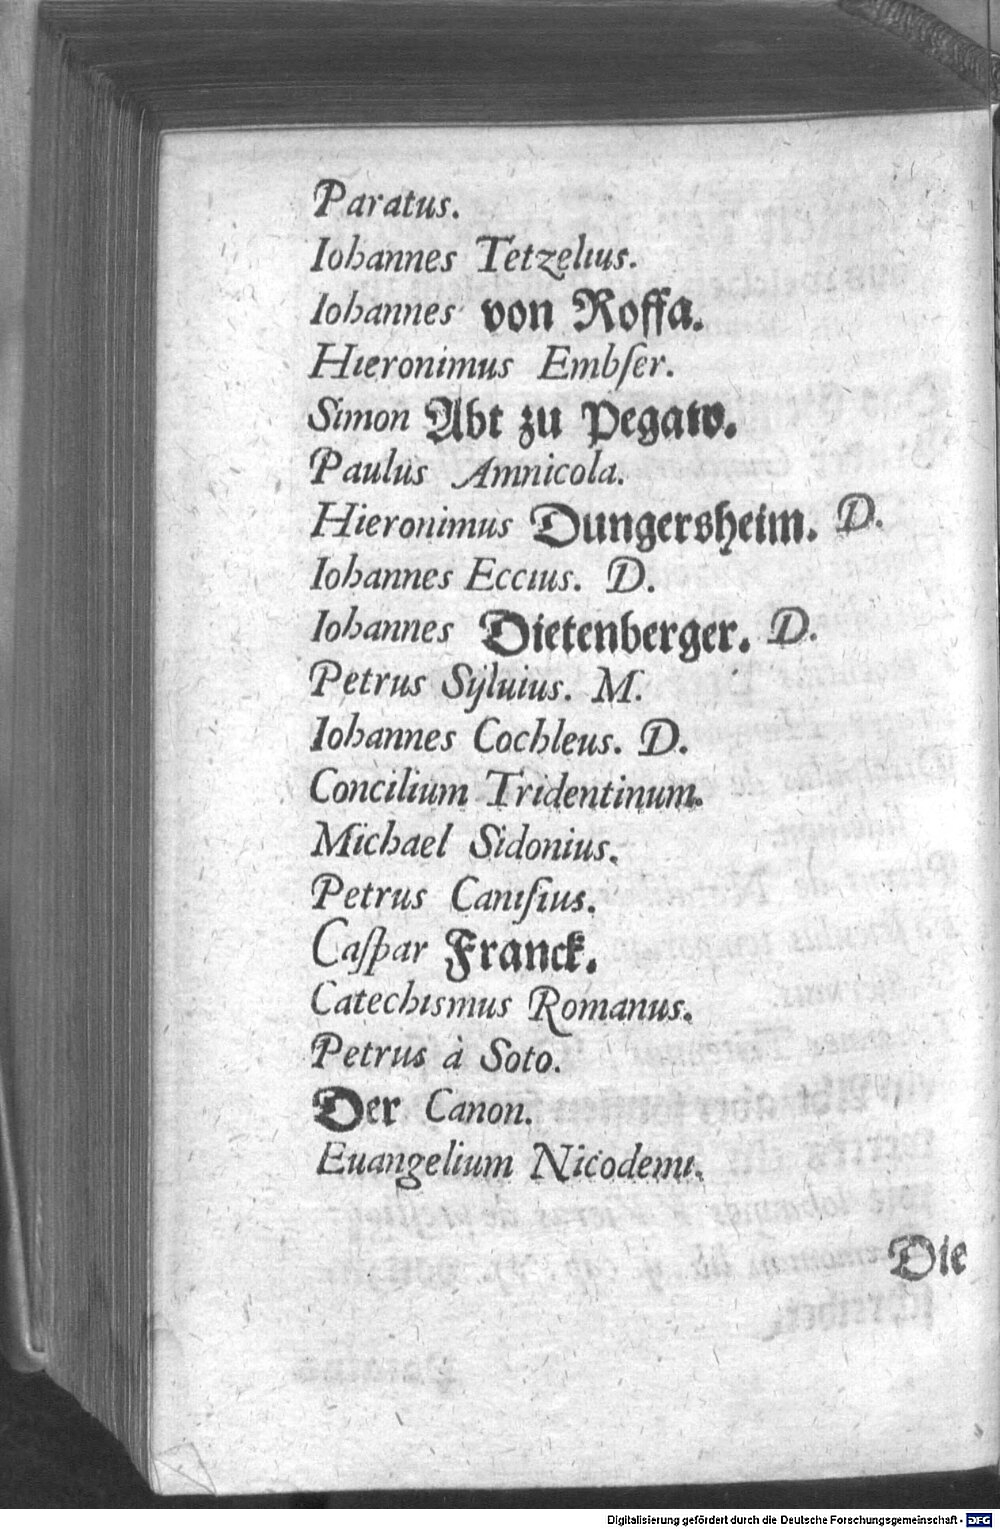 Paratus.
Iohannes Tetzelius.
Iohannes von Roffa.
Hieronimus Embſer.
Simon Abt zu Pegaw.
Paulus Amnicola.
Hieronimus Dungersheim. D.
Iohannes Eccius. D.
Iohannes Dietenberger. D.
Petrus Syluius. M.
Iohannes Cochleus. D.
Concilium Tridentinum.
Michael Sidonius.
Petrus Caniſius.
Caſpar Franck.
Catechismus Romanus.
Petrus à Soto.
Der Canon.
Euangelium Nicodemi.
Die
Digitalisierung gefördert durch die Deutsche Forschungsgemeinschaft - DFG